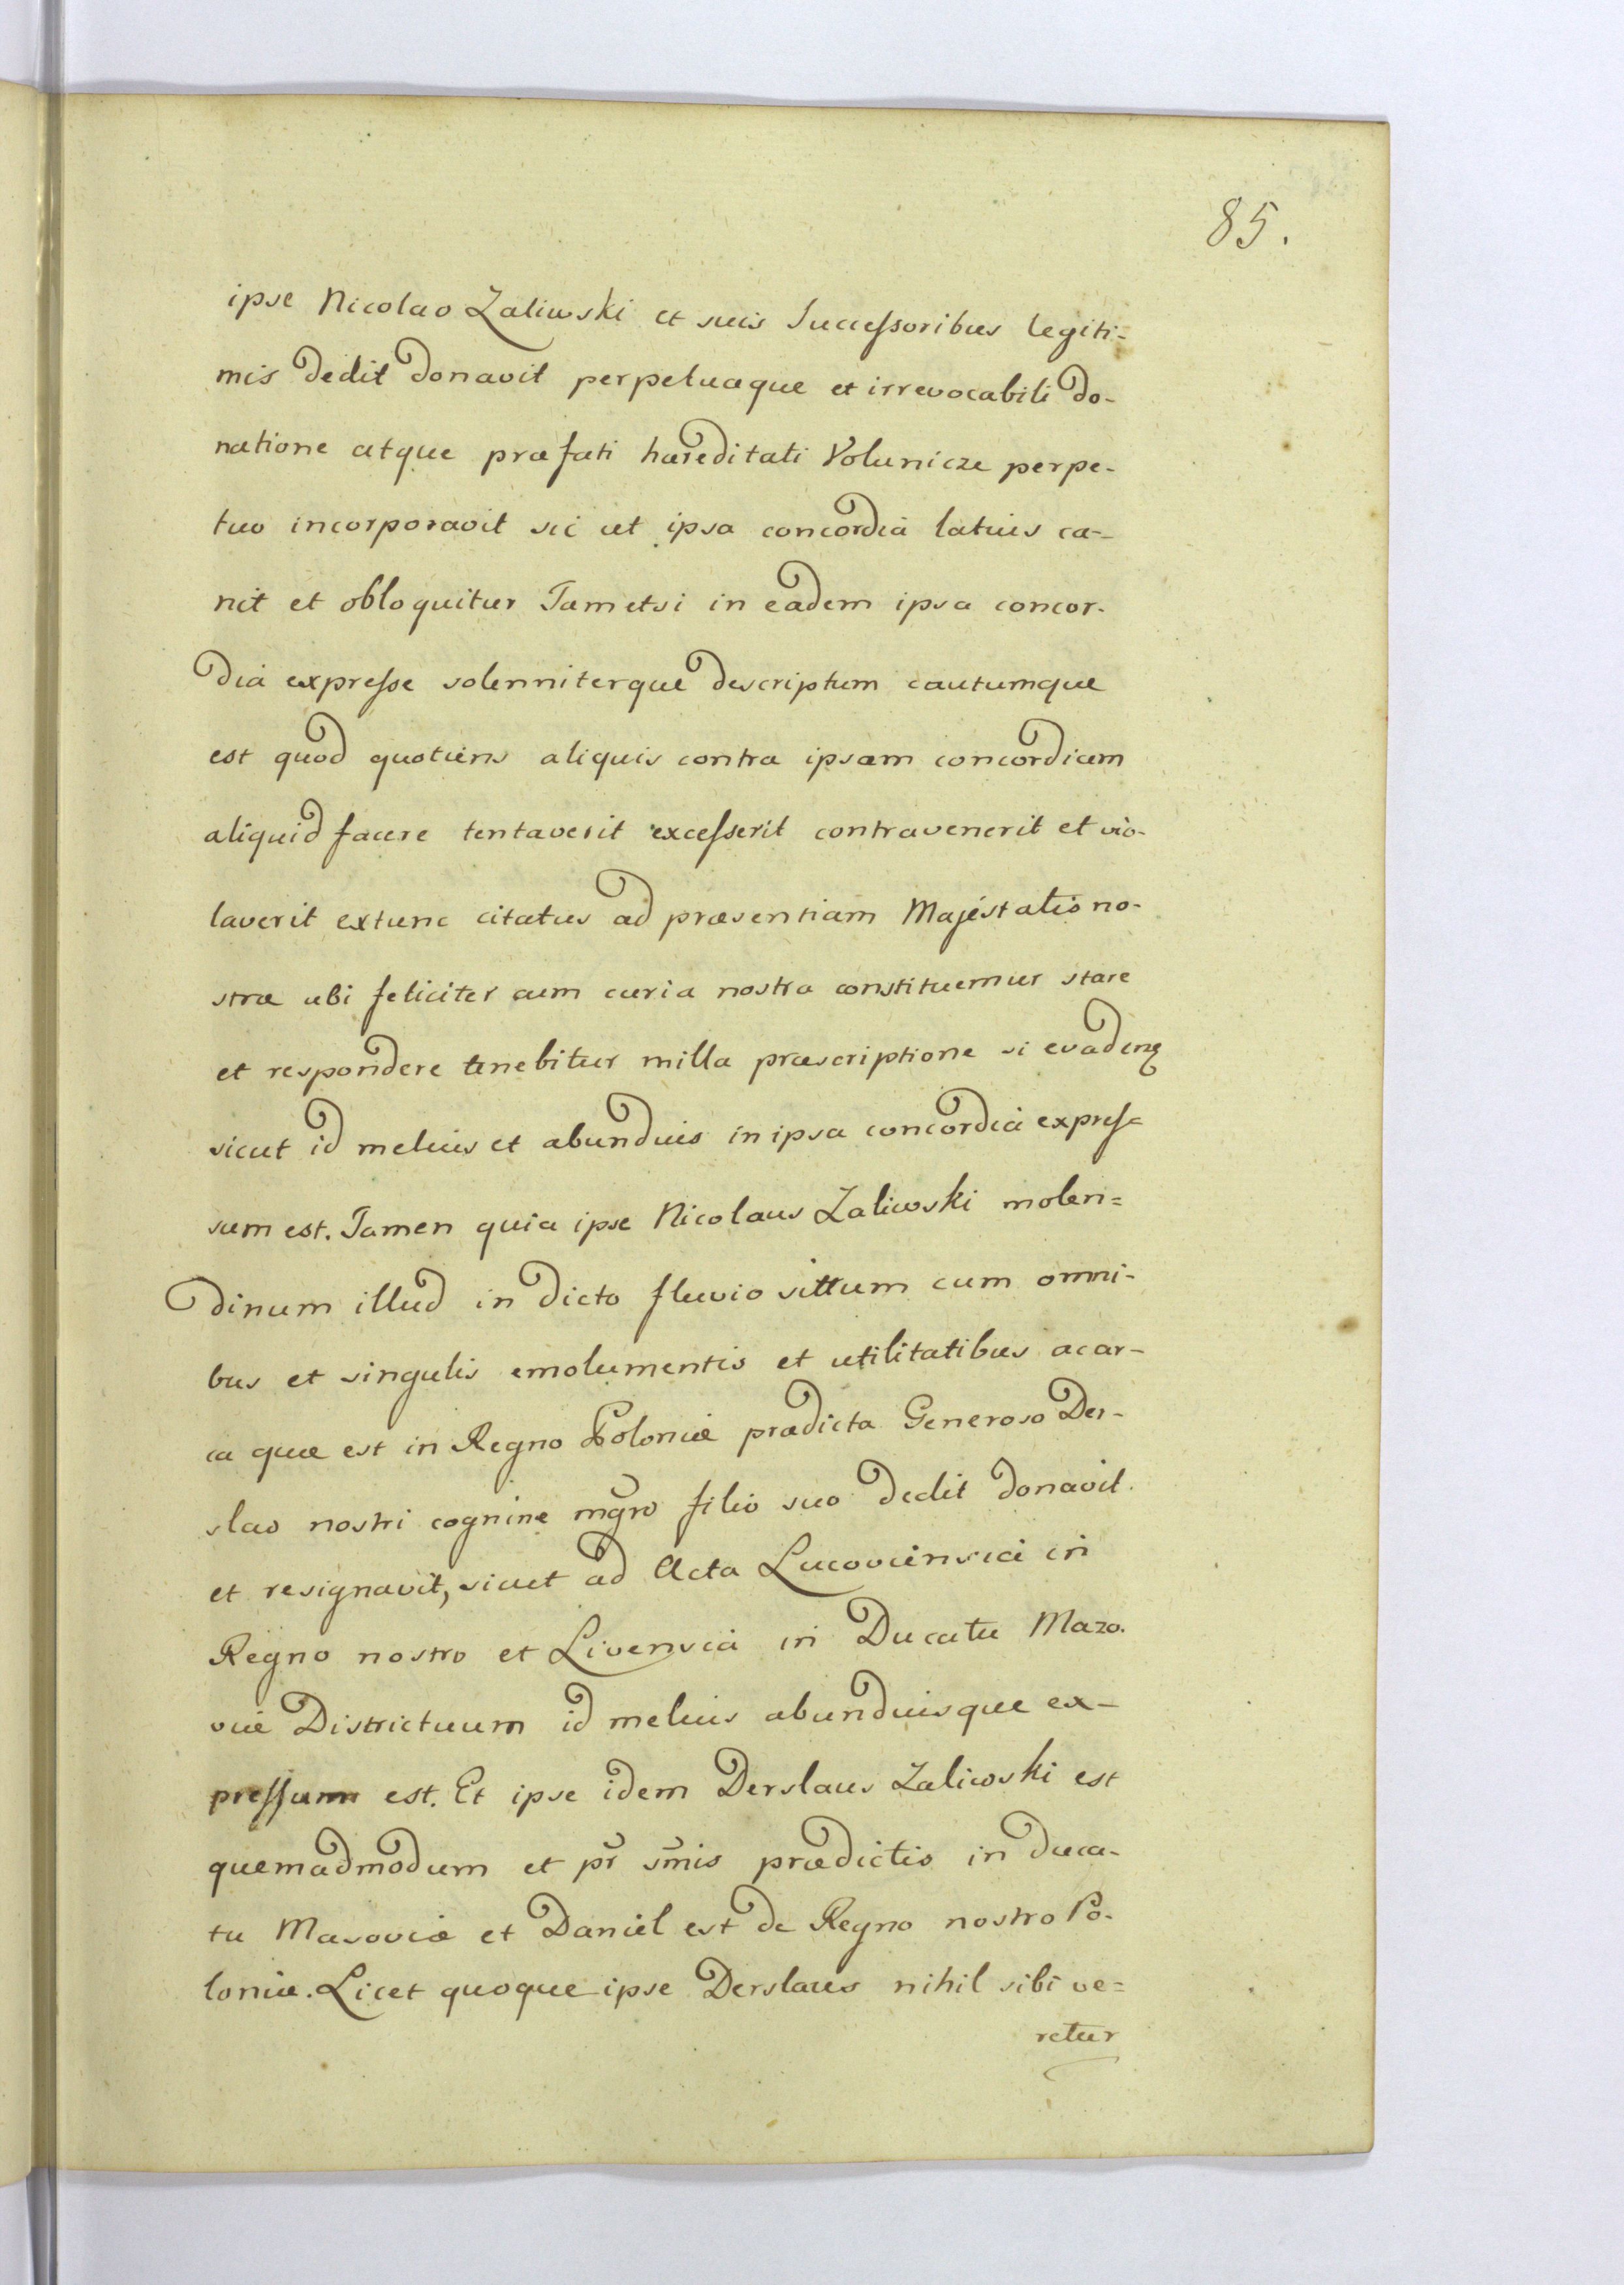 85.
ipse Nicolao Zaliwski et suis Successoribus legiti=
mis dedit donavit perpetuaque et irrevocabili do-
natione atque præfati hæreditati Volunicze perpe-
tuo incorporavit sic ut ipsa concordia latius ca-
nit et obloquitur Tametsi in eadem ipsa concor-
dia expresse solenniterque descriptum cautumque
est quod quotiens aliquis contra ipsam concordiam
aliquid facere tentaverit excesserit contravenerit et vio-
laverit extunc citatus ad præsentiam Majestatis no-
stræ ubi feliciter cum curia nostra constituemur stare
et respondere tenebitur milla præscriptione si evadenq
sicut id melius et abundius in ipsa concordia expres=
sum est. Tamen quia ipse Nicolaus Zaliwski molen=
dinum illud in dicto fluvio sittum cum omni-
bus et singulis emolumentis et utilitatibus ac ar-
ca quæ est in Regno Poloniæ prædicta Generoso Der-
slao nostri cognine mgro filio suo dedit donavit
et resignavit, sicut ad Acta Lucoviensia in
Regno nostro et Livensia in Ducatu Mazo-
viæ Districtuum id melius abundiusque ex-
pressum est. Et ipse idem Derslaus Zaliwski est
quemadmodum et pr smis prædictis in duca-
tu Masoviæ et Daniel est de Regno nostro Po-
loniæ. Licet quoque ipse Derslaus nihil sibi ve=
retur